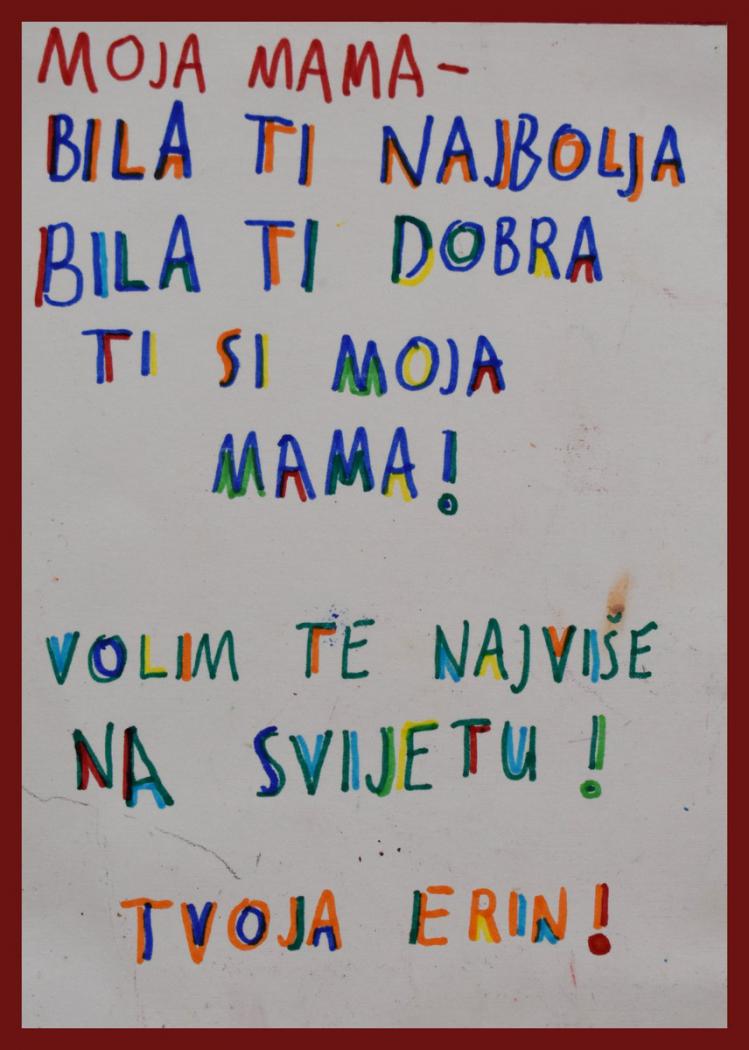 MOJA MAMA-
BILA TI NAJBOLJA
BILA TI DOBRA
TI SI MOJA
MAMA!
VOLIM TE NAJVIŠE
NA SVIJETU!
TVOJA ERIN!